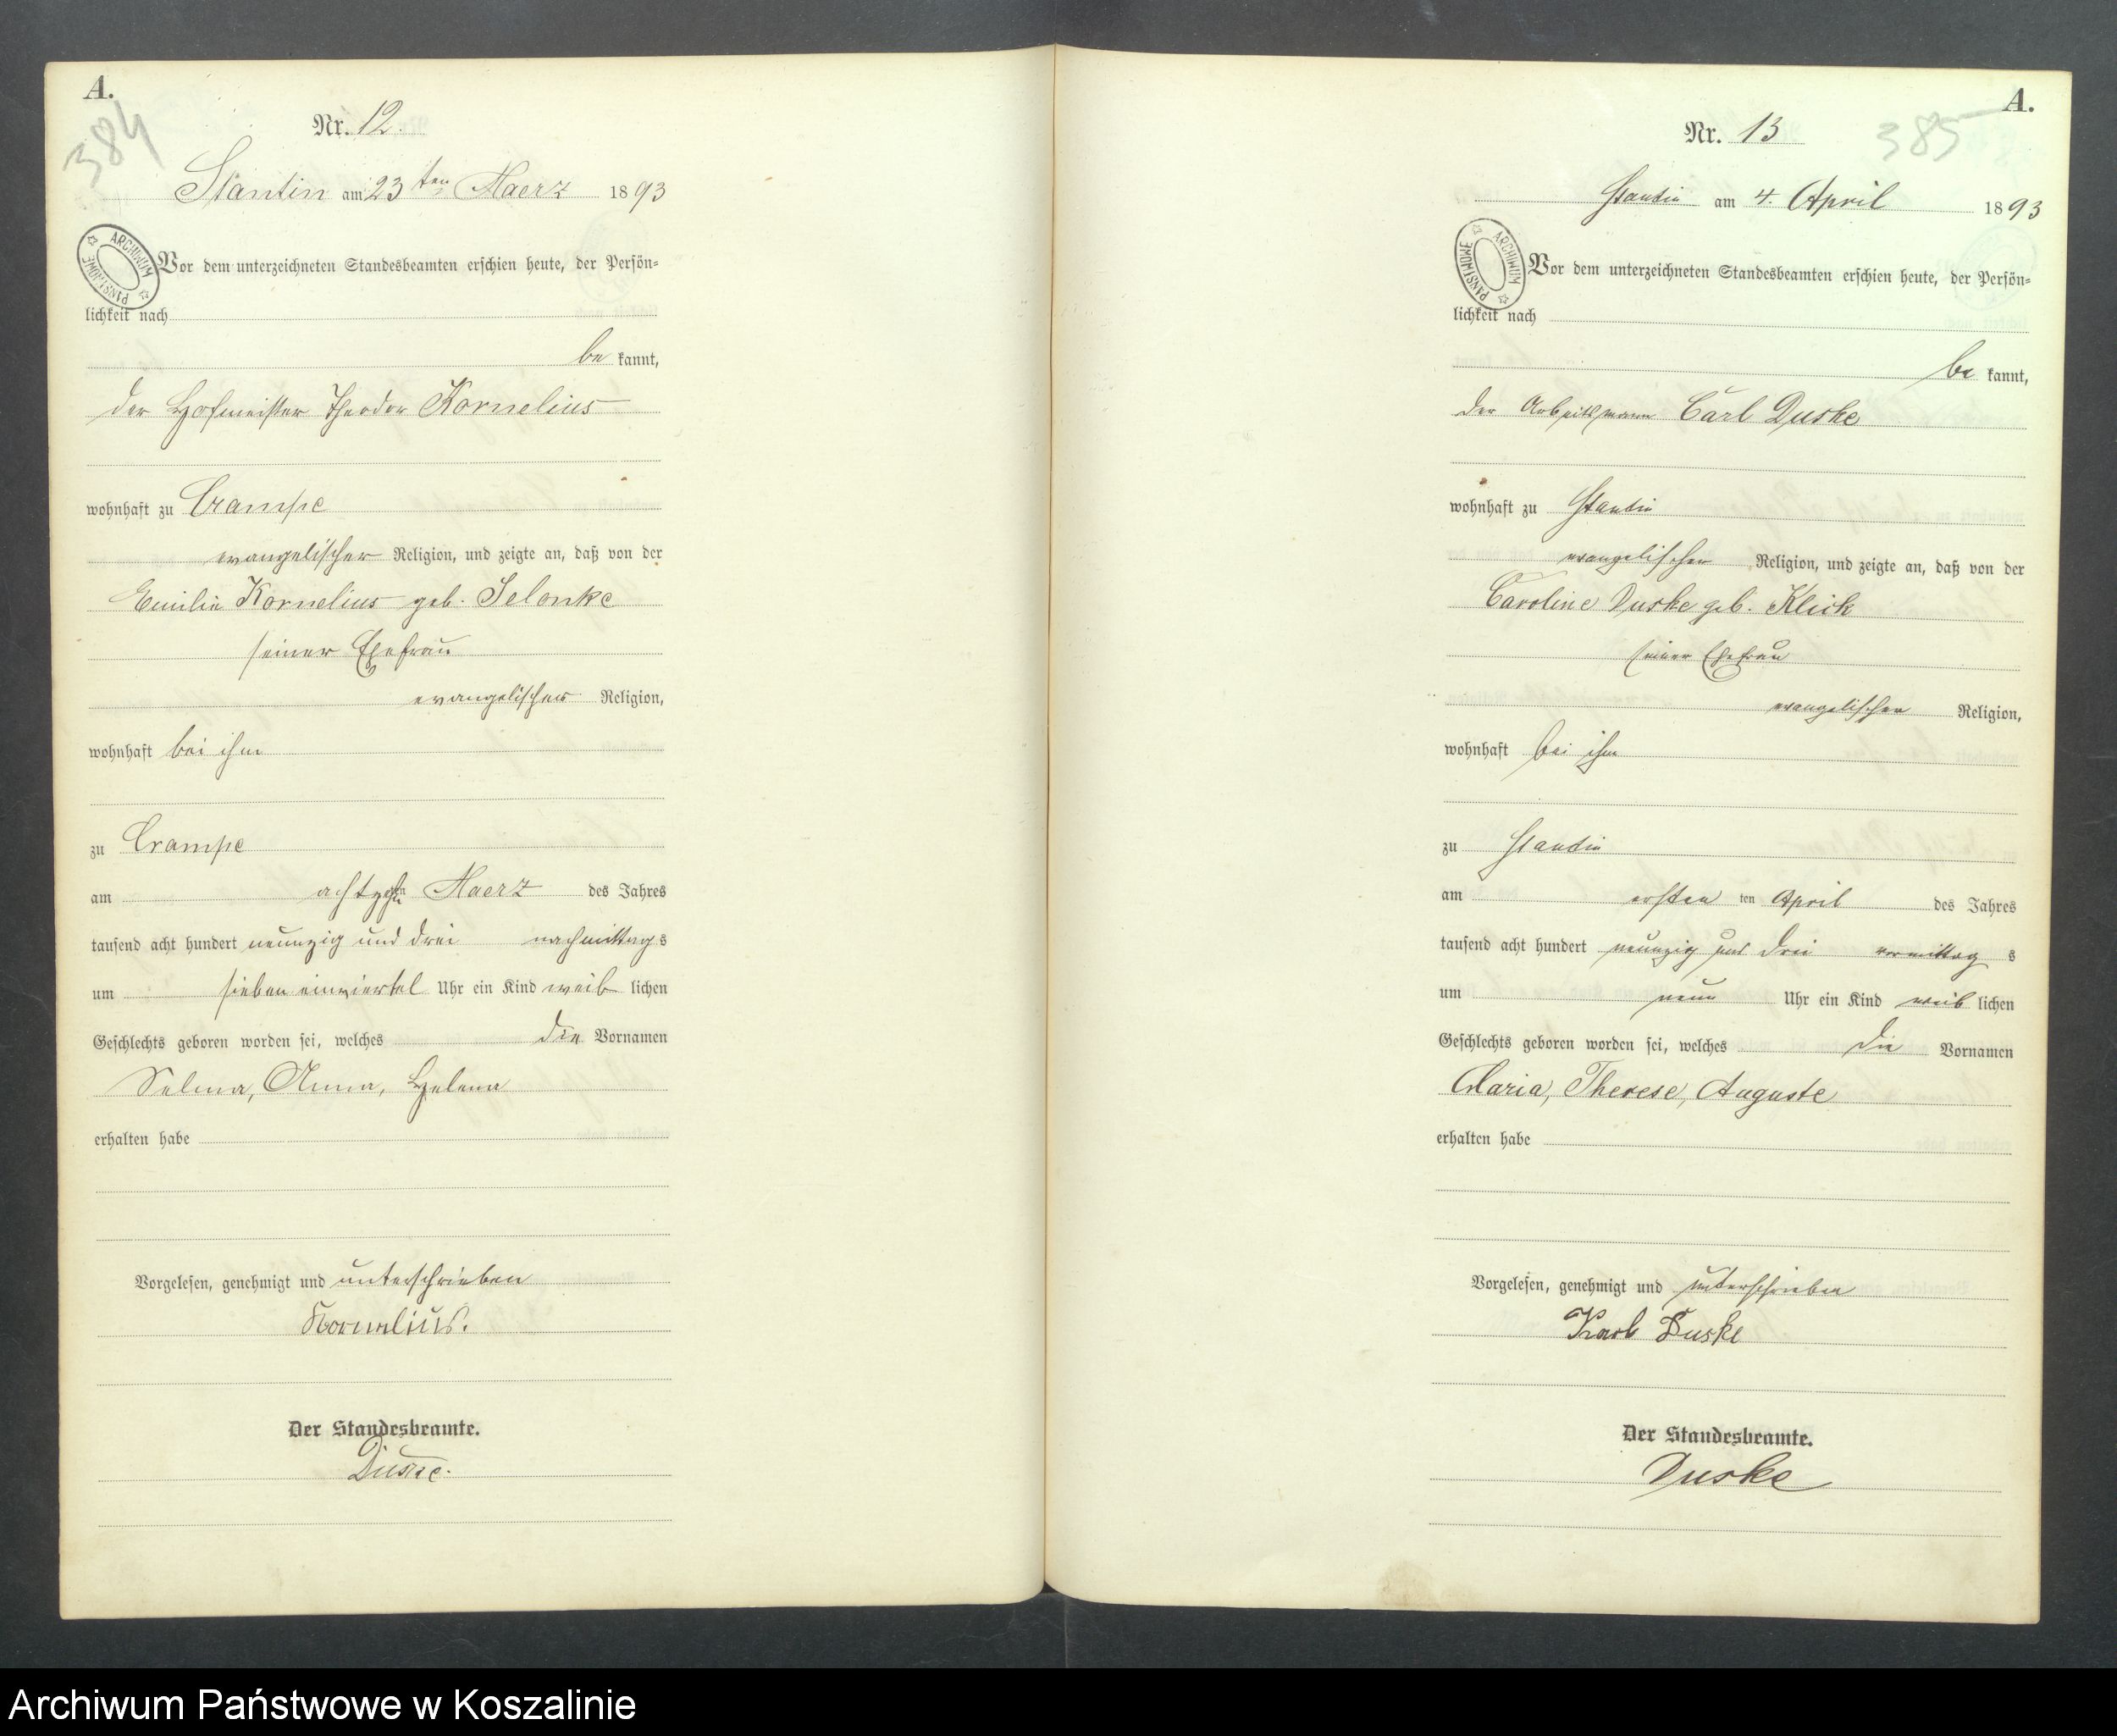 A.
384
Nr. 12.
Stantin am 23ten Maerz 1893
ARCHIWUM PAŃSTWOWE
Vor dem unterzeichneten Standesbeamten erschien heute, der Persön-
lichkeit nach
be kannt,
der Hofmeister Theodor Kornelius
wohnhaft zu Crampe
evangelischer Religion, und zeigte an, daß von der
Emilie Kornelius geb. Selonke
seiner Ehefrau
evangelischer Religion,
wohnhaft bei ihm
zu Crampe
am achtzehn Maerz des Jahres
tausend acht hundert neunzig und drei nachmittags
um sieben einviertel Uhr ein Kind weib lichen
Geschlechts geboren worden sei, welches die Vornamen
Selma, Anna, Helena
erhalten habe
Vorgelesen, genehmigt und unterschrieben
Kornelius.
Der Standesbeamte.
Duske.
A.
385
Nr. 13
Stantin am 4. April 1893
ARCHIWUM PAŃSTWOWE
Vor dem unterzeichneten Standesbeamten erschien heute, der Persön-
lichkeit nach
be kannt,
der Arbeitsmann Carl Duske
wohnhaft zu Stantin
evangelischer Religion, und zeigte an, daß von der
Caroline Duske geb. Klick
seiner Ehefrau
evangelischer Religion,
wohnhaft bei ihm
zu Stantin
am ersten ten April des Jahres
tausend acht hundert neunzig und drei vormittag s
um neun Uhr ein Kind weib lichen
Geschlechts geboren worden sei, welches die Vornamen
Maria, Therese, Auguste
erhalten habe
Vorgelesen, genehmigt und unterschrieben
Karl Duske
Der Standesbeamte.
Duske
Archiwum Państwowe w Koszalinie